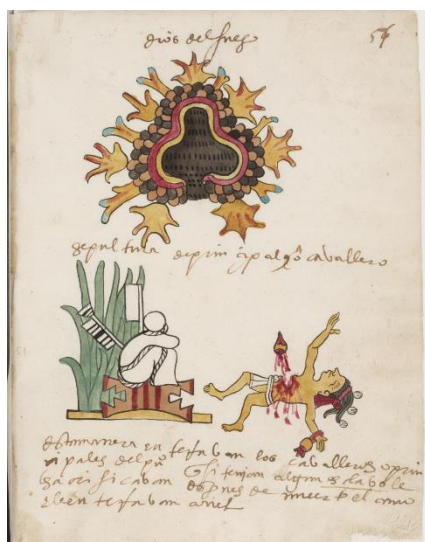 dios del fuego
56
sepultura de prinçipal o cavallero
desta manera en terravan los cavalleros o prin
çipales del pº si tenian algun esclavo le
sacrificavan despues de muerto el amo
e le en terravan